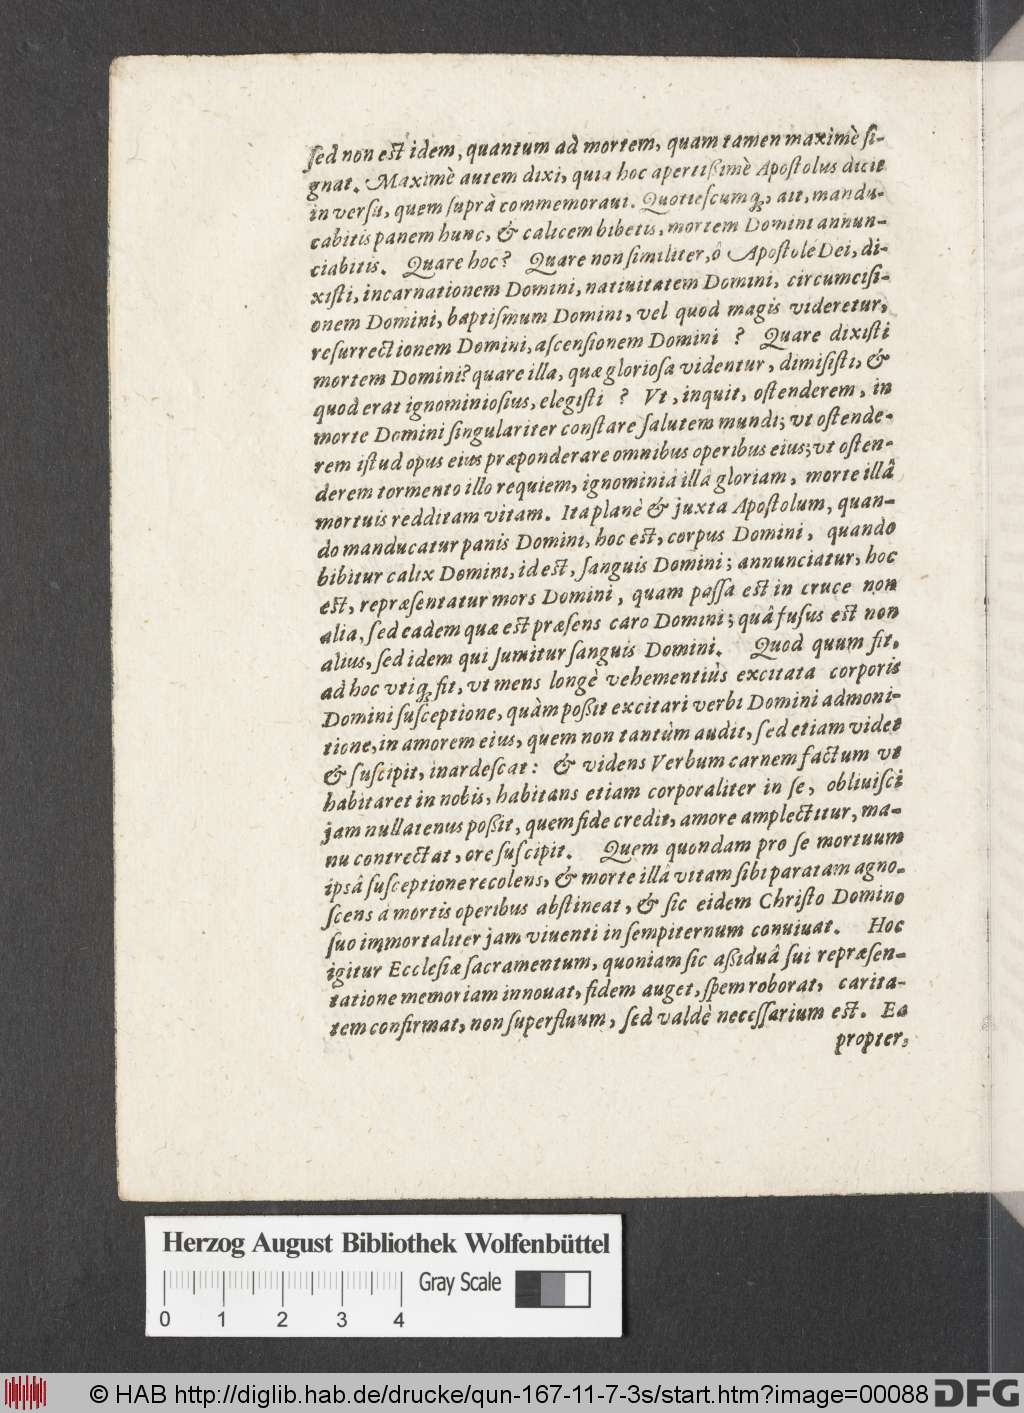 sed non est idem, quantum ad mortem, quam tamen maximè si-
gnat. Maximè autem dixi, quia hoc apertißimè Apostolus dicit
in versu, quem suprà commemoraui. Quotiescumq;, ait, mandu-
cabitis panem hunc, & calicem bibetis, mortem Domini annun-
ciabitis. Quare hoc? Quare non similiter, ô Apostole Dei, di-
xisti, incarnationem Domini, natiuitatem Domini, circumcisi-
onem Domini, baptismum Domini, vel quod magis videretur,
resurrectionem Domini, ascensionem Domini ? Quare dixisti
mortem Domini? quare illa, quæ gloriosa videntur, dimisisti, &
quod erat ignominiosius, elegisti ? Vt, inquit, ostenderem, in
morte Domini singulariter constare salutem mundi; vt ostende-
rem istud opus eius præponderare omnibus operibus eius; vt osten-
derem tormento illo requiem, ignominiâ illâ gloriam, morte illâ
mortuis redditam vitam. Ita planè & juxta Apostolum, quan-
do manducatur panis Domini, hoc est, corpus Domini, quando
bibitur calix Domini, id est, sanguis Domini; annunciatur, hoc
est, repræsentatur mors Domini, quam passa est in cruce non
alia, sed eadem quæ est præsens caro Domini; quâ fusus est non
alius, sed idem qui sumitur sanguis Domini. Quod quum fit,
ad hoc vtiq; fit, vt mens longè vehementiùs excitata corporis
Domini susceptione, quàm poßit excitari verbi Domini admoni-
tione, in amorem eius, quem non tantùm audit, sed etiam videt
& suscipit, inardescat: & videns Verbum carnem factum vt
habitaret in nobis, habitans etiam corporaliter in se, obliuisci
jam nullatenus poßit, quem fide credit, amore amplectitur, ma-
nu contrectat, ore suscipit. Quem quondam pro se mortuum
ipsâ susceptione recolens, & morte illâ vitam sibi paratam agno-
scens à mortis operibus abstineat, & sic eidem Christo Domino
suo immortaliter jam viuenti in sempiternum conuiuat. Hoc
igitur Ecclesiæ sacramentum, quoniam sic aßiduâ sui repræsen-
tatione memoriam innouat, fidem auget, spem roborat, carita-
tem confirmat, non superfluum, sed valdè necessarium est. Ea
propter,
Herzog August Bibliothek Wolfenbüttel
Gray Scale
0 1 2 3 4
© HAB http://diglib.hab.de/drucke/qun-167-11-7-3s/start.htm?image=00088 DFG